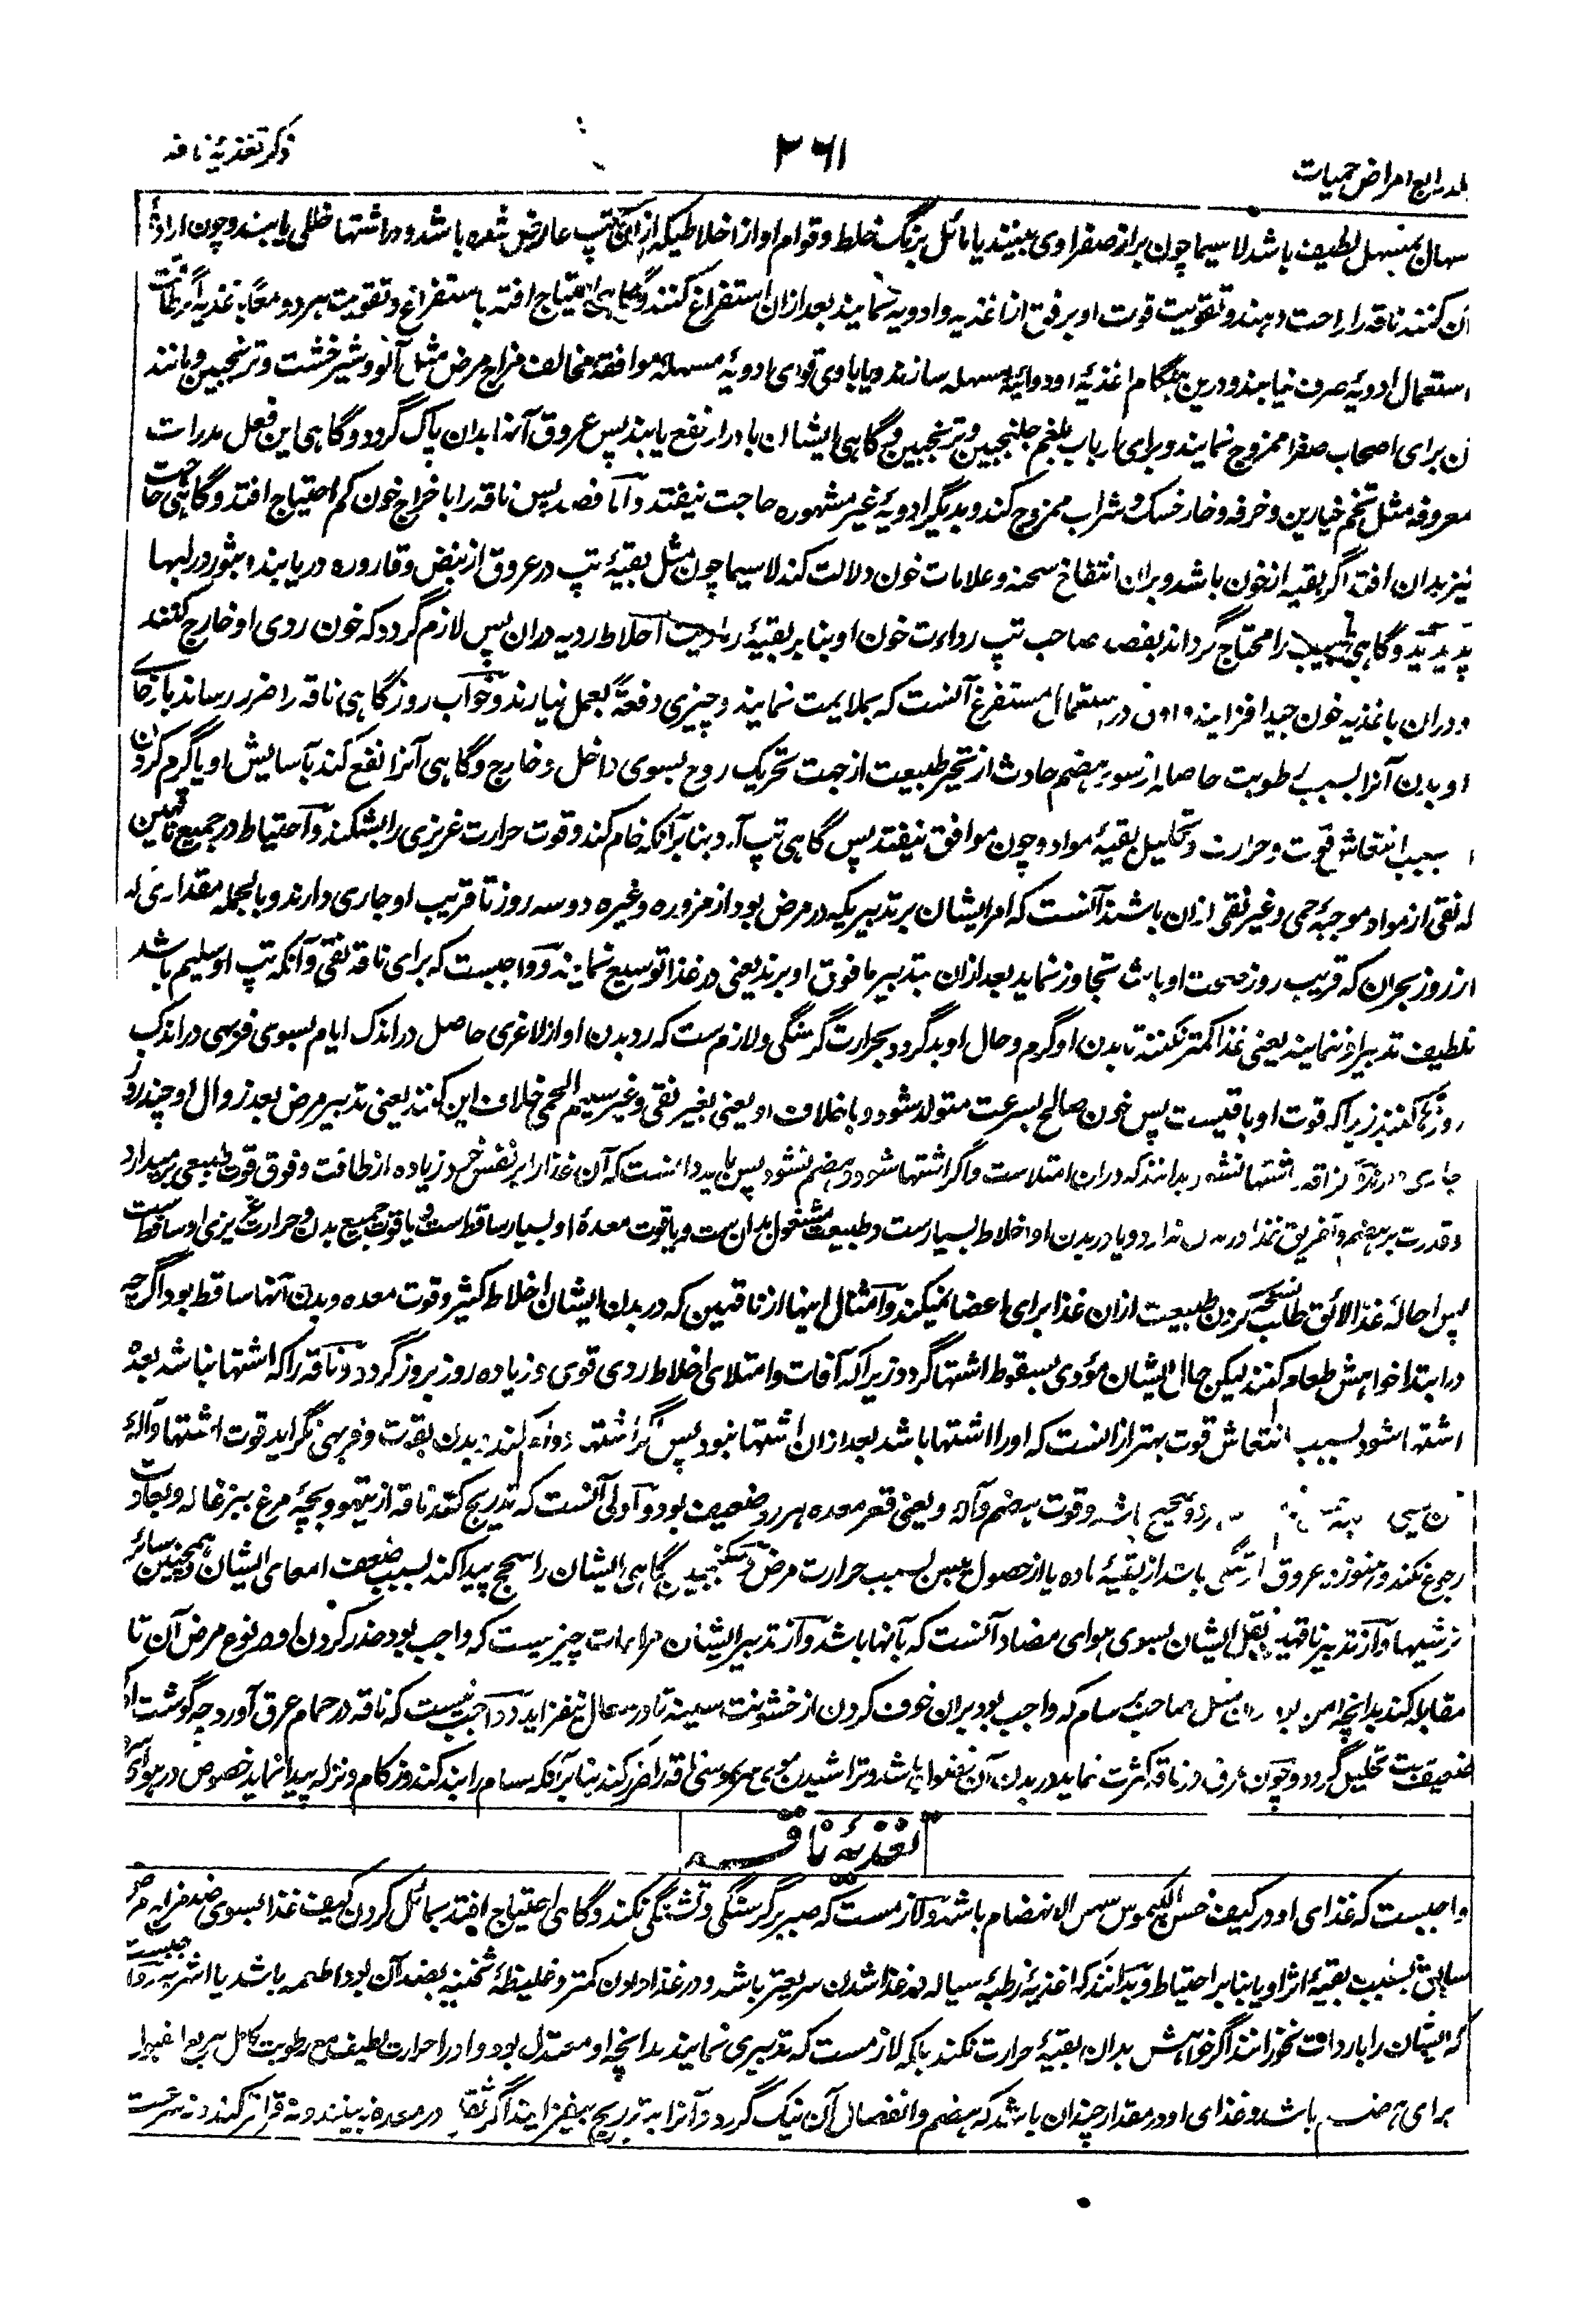 جلد رابع امراض حمیات
۳۶۱
ذکر تغذیهٔ ناقه
سهال بمسهل لطیف باشد لاسیما چون براز صفراوی بینند یا مائل برنگ خلط و قوام او از اخلاطیکه ازان تپ عارض شده باشد و در اشتها خللی یابند و چون ارادهٔ
آن کنند ناقه را راحت دهند و تقویت قوت او برفق از اغذیه و ادویه نمایند بعد ازان استفراغ کنند و گاهی احتیاج افتد باستفراغ و تقویت هر دو معاً
استعمال ادویهٔ صرف نیابند و درین هنگام اغذیهٔ او دوائیهٔ مسهله سازند و یا باوی قوای ادویهٔ مسهلهٔ موافقهٔ مخالف مزاج مرض مثل آلو و شیرخشت و ترنجبین و مانند
آن برای اصحاب صفرا ممزوج نمایند و برای ارباب بلغم جلنجبین و ترنجبین و گاهی ایشان بادرار نفع یابند پس عروق آنها بدان پاک گردد و گاهی این فعل مدرات
معروفه مثل تخم خیارین و خرفه و خارخسک و شراب ممزوج کند و بدیگر ادویهٔ غیر مشهوره حاجت نیفتد و اما فصد پس ناقه را باخراج خون کم احتیاج افتد و گاهی حاجت
نیز بدان افتد اگر بقیه از خون باشد و بران انتفاخ سحنه و علامات خون دلالت کند لاسیما چون مثل بقیهٔ تپ در عروق از نبض و قاروره دریابند و بثور در لبها
پدید آید و گاهی طبیب را محتاج گرداند بفصد صاحب تپ رداءت خون او بنا بر بقیهٔ اخلاط ردیه دران پس لازم گردد که خون ردی او خارج کنند
و دران باغذیه خون جید افزایند و اولی در استعمال مستفرغ آنست که بملایمت نمایند و چیزی دفعةً بعمل نیارند و خواب روز گاهی ناقه را ضرر رساند بارخای
او بدن آنرا بسبب رطوبت حاصله از سوء هضم حادث از تحیر طبیعت از جهت تحریک روح بسوی داخل و خارج و گاهی آنرا نفع کند بآسایش او یا گرم کردن
بسبب انتعاش قوت و حرارت و تحلیل بقیهٔ مواد و چون موافق نیفتد پس گاهی تپ آرد بنا بر آنکه خام کند و قوت حرارت غریزی را بشکند و احتیاط در جمیع ناقهین
که نقی از مواد موجبهٔ حمی و غیر نقی ازان باشند آنست که امر ایشان بر تدبیریکه در مرض بود از مزوره و غیره دو سه روز تا قریب او جاری دارند و بالجمله مقداری که
از روز بحران که قریب روز صحت او باشد تجاوز نماید بعد ازان بتدبیر مافوق او برند یعنی در غذا توسیع نمایند و واجبست که برای ناقه نقی و آنکه تپ او سلیم باشد
تلطیف تدبیر او ننمایند یعنی غذا کمتر نکنند تا بدن او گرم و حال او بد گردد بحرارت گرسنگی و لازم ست که رد بدن او از لاغری حاصل در اندک ایام بسوی فربهی در اندک
روزها کنند زیرا که قوت او باقیست پس خون صالح بسرعت متولد شود و بخلاف او یعنی بغیر نقی و غیر سلیم الحمی خلاف این کنند یعنی تدبیر مرض بعد زوال او چند روز
جاری دارند ناقه اشتها نشود بدانند که دران امتلاست و اگر اشتها شود و هضم نشود پس باید دانست که آن غذا را بر نفس خود زیاده از طاقت و فوق قوت طبیعی برمیدارد
و قدرت بر هضم و تفریق غذا در بدن ندارد و یا در بدن او اخلاط بسیارست و طبیعت مشغول بدان ست و یا قوت معدهٔ او بسیار ساقط است و یا قوت جمیع بدن و حرارت غریزی او ساقط است
پس احالهٔ غذا لائق طلب کردن طبیعت ازان غذا برای اعضا نمیکند و امثال اینها از ناقهین که در بدان ایشان اخلاط کثیر و قوت معده و بدن آنها ساقط بود اگرچه
در ابتدا خواهش طعام کنند لیکن حال ایشان مؤدی بسقوط اشتها گردد زیرا که آفات و امتلای اخلاط ردی قوی و زیاده روز بروز گردد و ناقه را که اشتها نباشد بعده
اشتها شود بسبب انتعاش قوت بهتر ازانست که اورا اشتها باشد بعد ازان اشتها نبود پس اگر اشتها کند بدن بقوت و فربهی نگراید قوت اشتها و آلهٔ
صحیح باشد و قوت هضم و آله و یعنی قعر معده هر دو ضعیف بود و اولی آنست که تدریج کنند ناقه از تیهو و بچهٔ مرغ ببزغاله و بعادت
رجوع نکند و هنوز در عروق او تنگی باشد از بقیهٔ ماده یا از حصول یبس بسبب حرارت مرض و سکنجبین گاهی ایشان را سحج پیدا کند بسبب ضعف امعای ایشان و همچنین سائر
ترشیها و از تدبیر ناقهین نقل ایشان بسوی هوای مضاد آنست که بآنها باشد و از تدبیر ایشان مراعات چیزیست که واجب بود حذر کردن او از نوع مرض آن تا
مقابله کند بدانچه امن بود ازان مثل صاحب برسام که واجب بود بران خوف کردن از خشونت سینه تا در سعال نیفزاید و واجب نیست که ناقه در حمام عرق آورد چه گوشت او
ضعیف ست تحلیل گردد و چون عرق در ناقه کثرت نماید در بدن آن فضول باشد و تراشیدن موی سر بموسی ناقه را ضرر کند بنا بر آنکه مسام را بند کند و زکام و نزله پیدا نماید خصوص در هوای سرد
تغذیهٔ ناقه
واجبست که غذای او در کیف حسن الکیموس سهل الانهضام باشد و لازمست که صبر بر گرسنگی و تشنگی نکند و گاهی احتیاج افتد بمائل کردن کیف غذا بسوی ضد مزاج مرض
سابق بسبب بقیهٔ اثر او یا بنا بر احتیاط و بدانند که اغذیهٔ رطبهٔ سیاله در غذا شدن سریعتر باشد و در غذا دادن کمتر و غلیظهٔ ثخینه بضد آن بود اطعمه باشد یا اشربه و واجبست
که ایشان را باردات نخورانند اگر خواهش بدان بقیهٔ حرارت نکند بلکه لازمست که تدبیری نمایند بدانچه او معتدل بود و اورا حرارت لطیف مع رطوبت کامل سریع القبول
برای هضم باشد و غذای او در مقدار چندان باشد که هضم و انفصال آن نیک گردد و آنرا به تدریج بیفزایند اگر ثقل در معده نه بینند و نه قراقر کند و نه سرعت